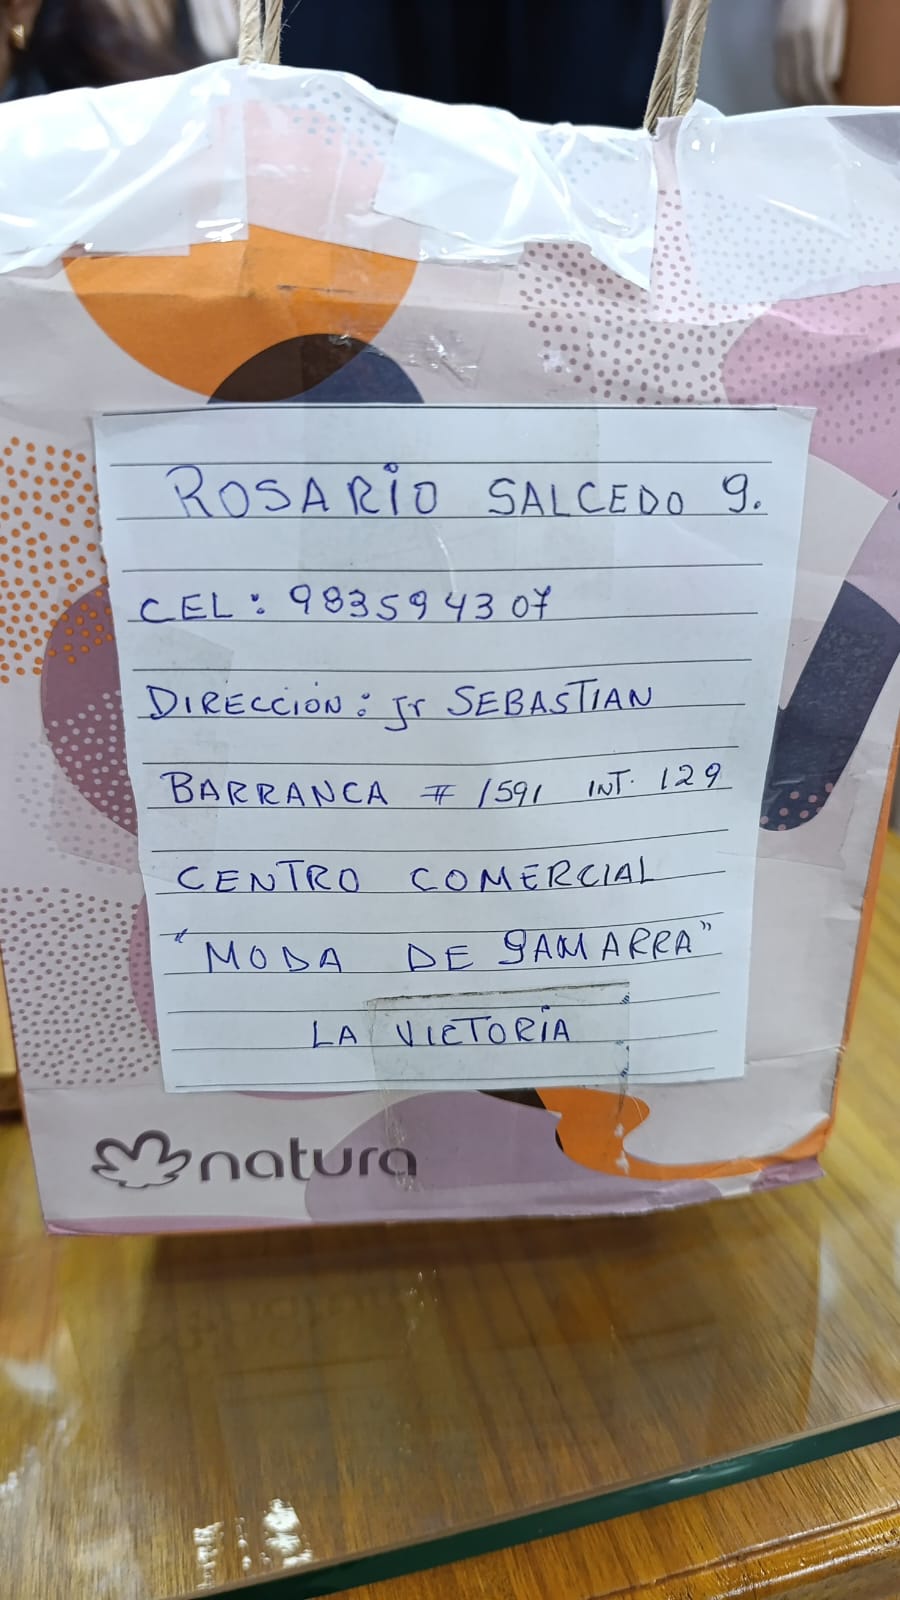 ROSARIO SALCEDO G.
CEL: 983594307
DIRECCIÓN: Jr SEBASTIAN
BARRANCA # 1591 INT. 129
CENTRO COMERCIAL
"MODA DE GAMARRA"
LA VICTORIA
natura